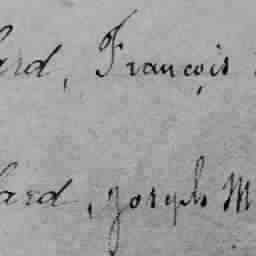 ard, François
ard, Joseph M